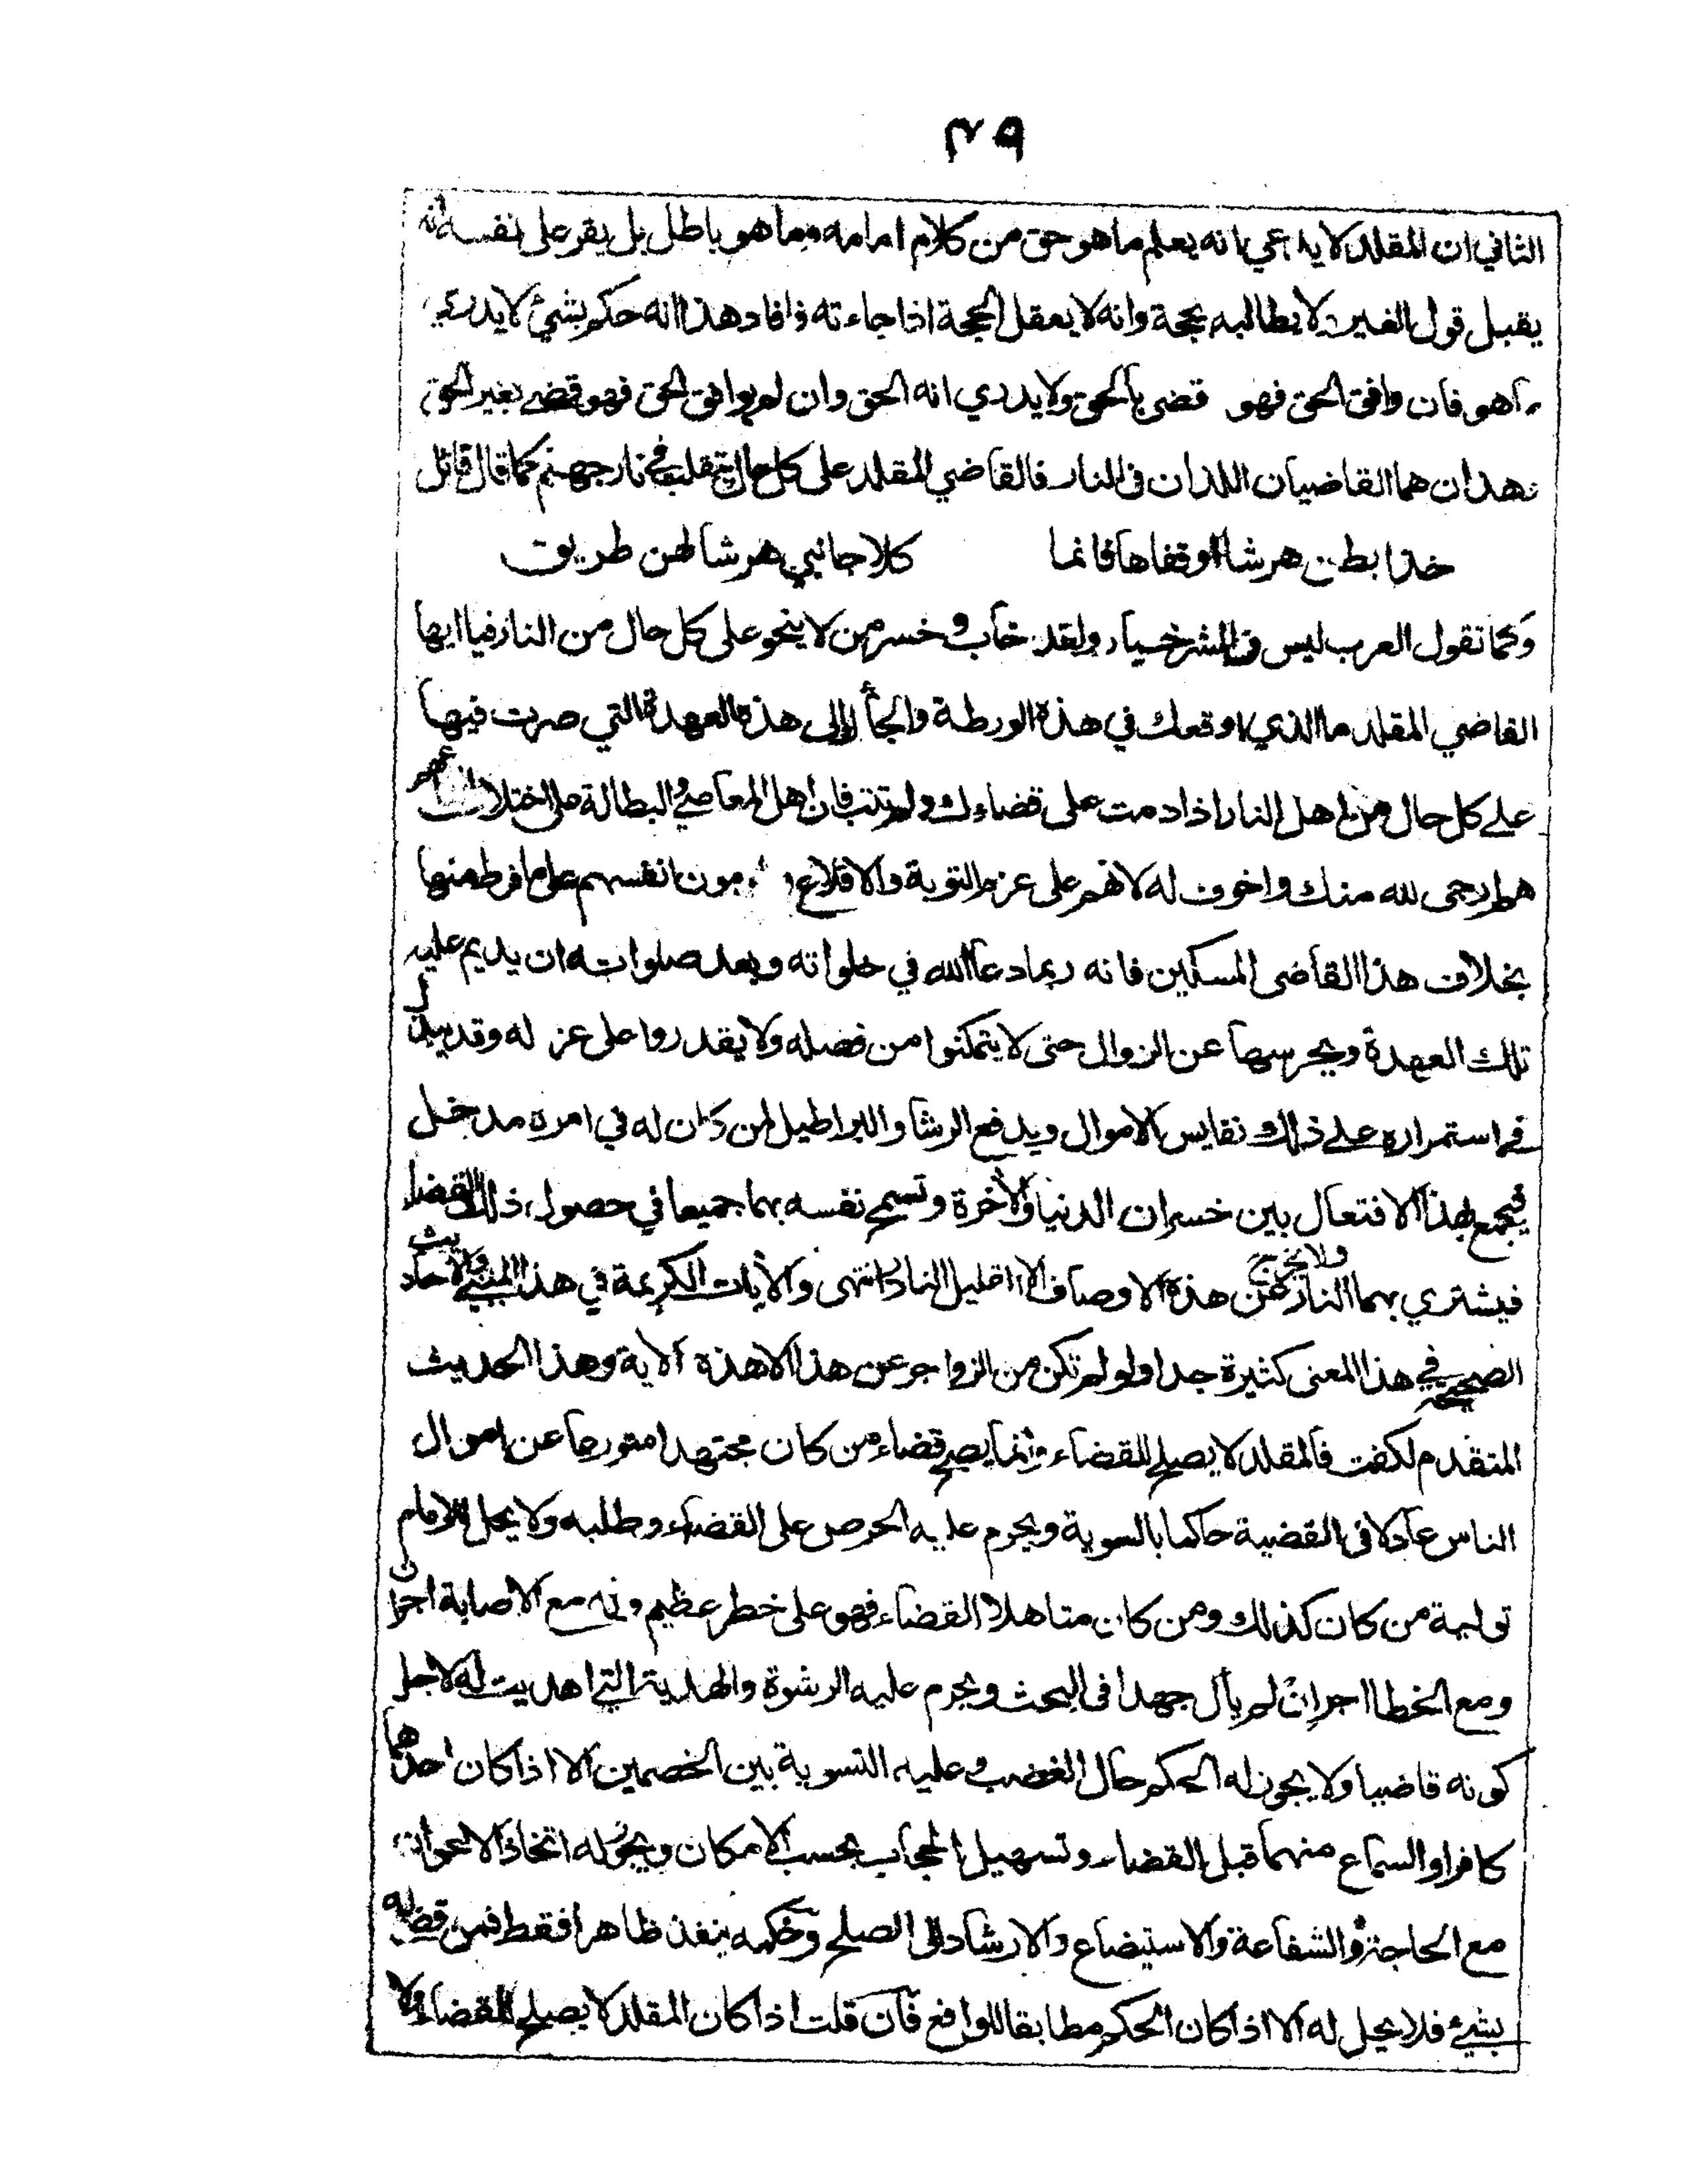 ٣٩
الثاني ان المقلد لا يدعي بانه يعلم ما هو حق من كلام امامه وما هو باطل بل يقر على نفسه انه
يقبل قول الغير ولا يطالبه بحجة وانه لا يعقل الحجة اذا جاءته فافاد هذا انه حكم بشئ لا يدري
ما هو فان وافق الحق فهو قضى بالحق ولا يدري انه الحق وان لم يوافق الحق فهو قضى بغير الحق
وهذان هما القاضيان اللذان في النار فالقاضي المقلد على كل حال يتقلب في نار جهنم كما قال قائل
خذا بطن هرشا او قفاها فانما كلا جانبي هرشا لهن طريق
وكما تقول العرب ليس في الشر خيار ولقد خاب وخسر من لا ينجو على كل حال من النار فيا ايها
القاضي المقلد ما الذي اوقعك في هذه الورطة والجأك الى هذه العهدة التي صرت فيها
على كل حال من اهل النار اذا دمت على قضاءك ولم تتب فان اهل المعاصي والبطالة على اختلاف انواعهم
هم ارجى لله منك واخوف له لانهم على عزم التوبة والاقلاع مون انفسهم على ما فرط منها
بخلاف هذا القاضي المسكين فانه ربما دعا الله في خلواته وبعد صلواته ان يديم عليه
تلك العهدة ويحرسها عن الزوال حتى لا يتمكنوا من فصله ولا يقدروا على عزله وقد يبذل
في استمراره على ذلك نفايس الاموال ويدفع الرشا والبراطيل لمن كان له في امره مدخل
فيجمع بهذا الافتعال بين خسران الدنيا والآخرة وتسمح نفسه بهما جميعا في حصول ذلك القضا
فيشتري بهما النار ولا يخرج عن هذه الاوصاف الا القليل النادر انتهى والآيات الكريمة في هذا المعنى والاحاديث
الصحيحة في هذا المعنى كثيرة جدا ولو لم تكن من الزواجر عن هذا الا هذه الآية وهذا الحديث
المتقدم لكفت فالمقلد لا يصلح للقضاء وانما يصح قضاء من كان مجتهدا متورعا عن اموال
الناس عادلا في القضية حاكما بالسوية ويحرم عليه الحرص على القضاء وطلبه ولا يحل للامام
تولية من كان كذلك ومن كان متاهلا للقضاء فهو على خطر عظيم وله مع الاصابة اجران
ومع الخطا اجر ان لم يأل جهدا في البحث ويحرم عليه الرشوة والهدية التي اهديت له لاجل
كونه قاضيا ولا يجوز له الحكم حال الغضب وعليه التسوية بين الخصمين الا اذا كان احدهما
كافرا والسماع منهما قبل القضاء وتسهيل الحجاب بحسب الامكان ويجوز له اتخاذ الاعوان
مع الحاجة والشفاعة والاستيضاع والارشاد الى الصلح وحكمه ينفذ ظاهرا فقط فمن قضي له
بشئ فلا يحل له الا اذا كان الحكم مطابقا للواقع فان قلت اذا كان المقلد لا يصلح للقضاء ولا